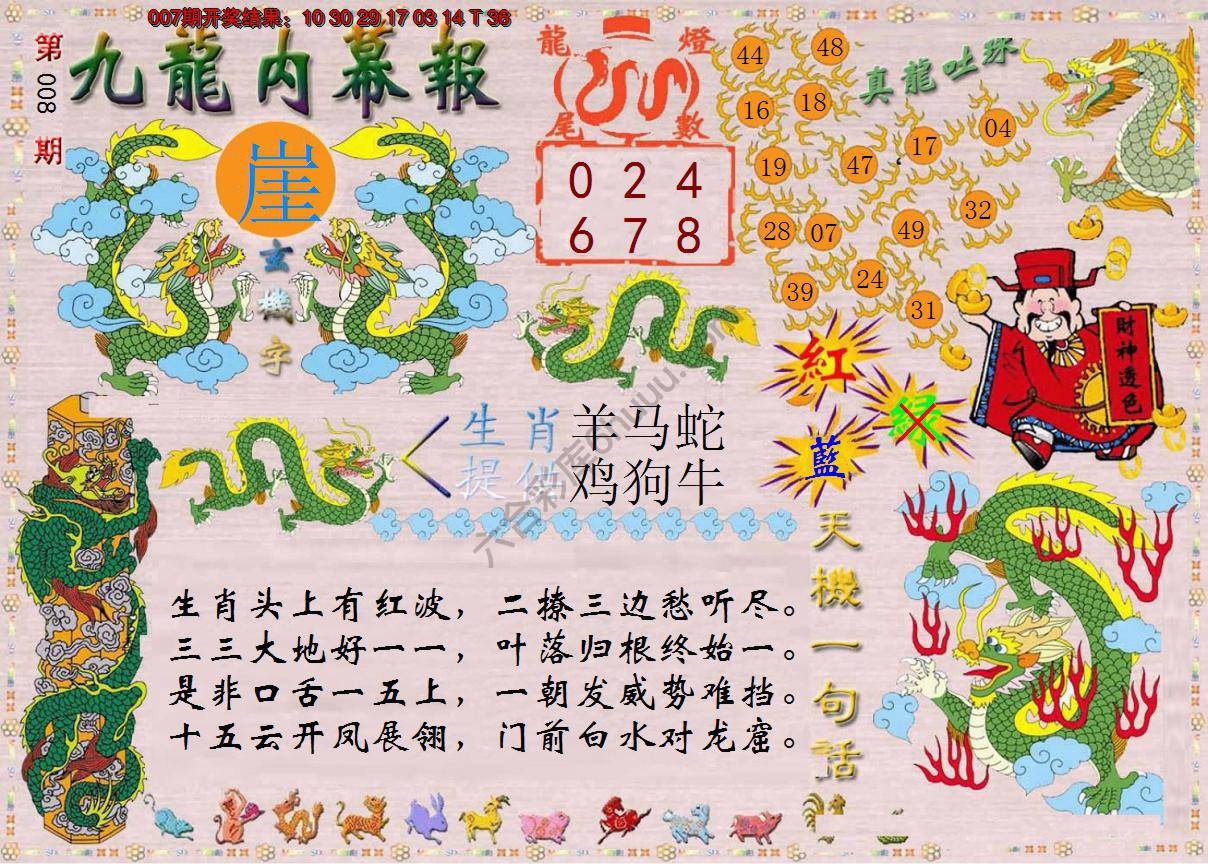 007期开奖结果：10 30 29 17 03 14 T 36
第
008
期
九龍内幕報
崖
玄
機
字
龍 燈
尾 數
0 2 4
6 7 8
真龍吐珠
44
48
16
18
04
17
19
47
32
28
07
49
24
39
31
財神透色
紅
绿
藍
生肖
羊马蛇
提供
鸡狗牛
天機一句話
生肖头上有红波，二撩三边愁听尽。
三三大地好一一，叶落归根终始一。
是非口舌一五上，一朝发威势难挡。
十五云开凤展翎，门前白水对龙窟。